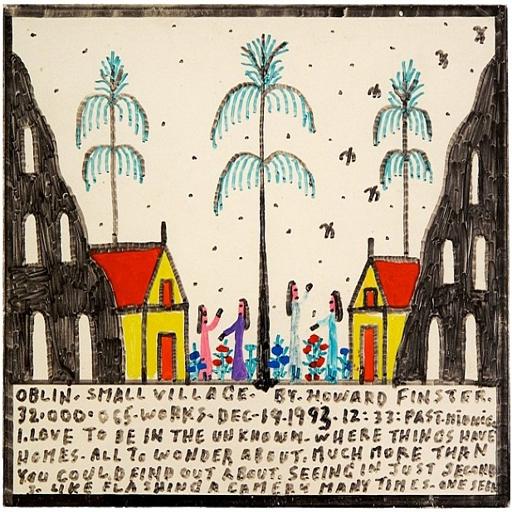 OBLIN. SMALL VILLAGE. BY. HOWARD FINSTER.
32.000.065.WORKS. DEC-19.1993.12:33: PAST.
I.LOVE TO BE IN THE UNKNOWN. WHERE THINGS HAVE
HOMES. ALL TO WONDER ABOUT. MUCH MORE THAN
YOU COULD FIND OUT ABOUT. SEEING IN JUST SECOND
S. LIKE FLASHING A CAMERY MANY TIMES. ONE